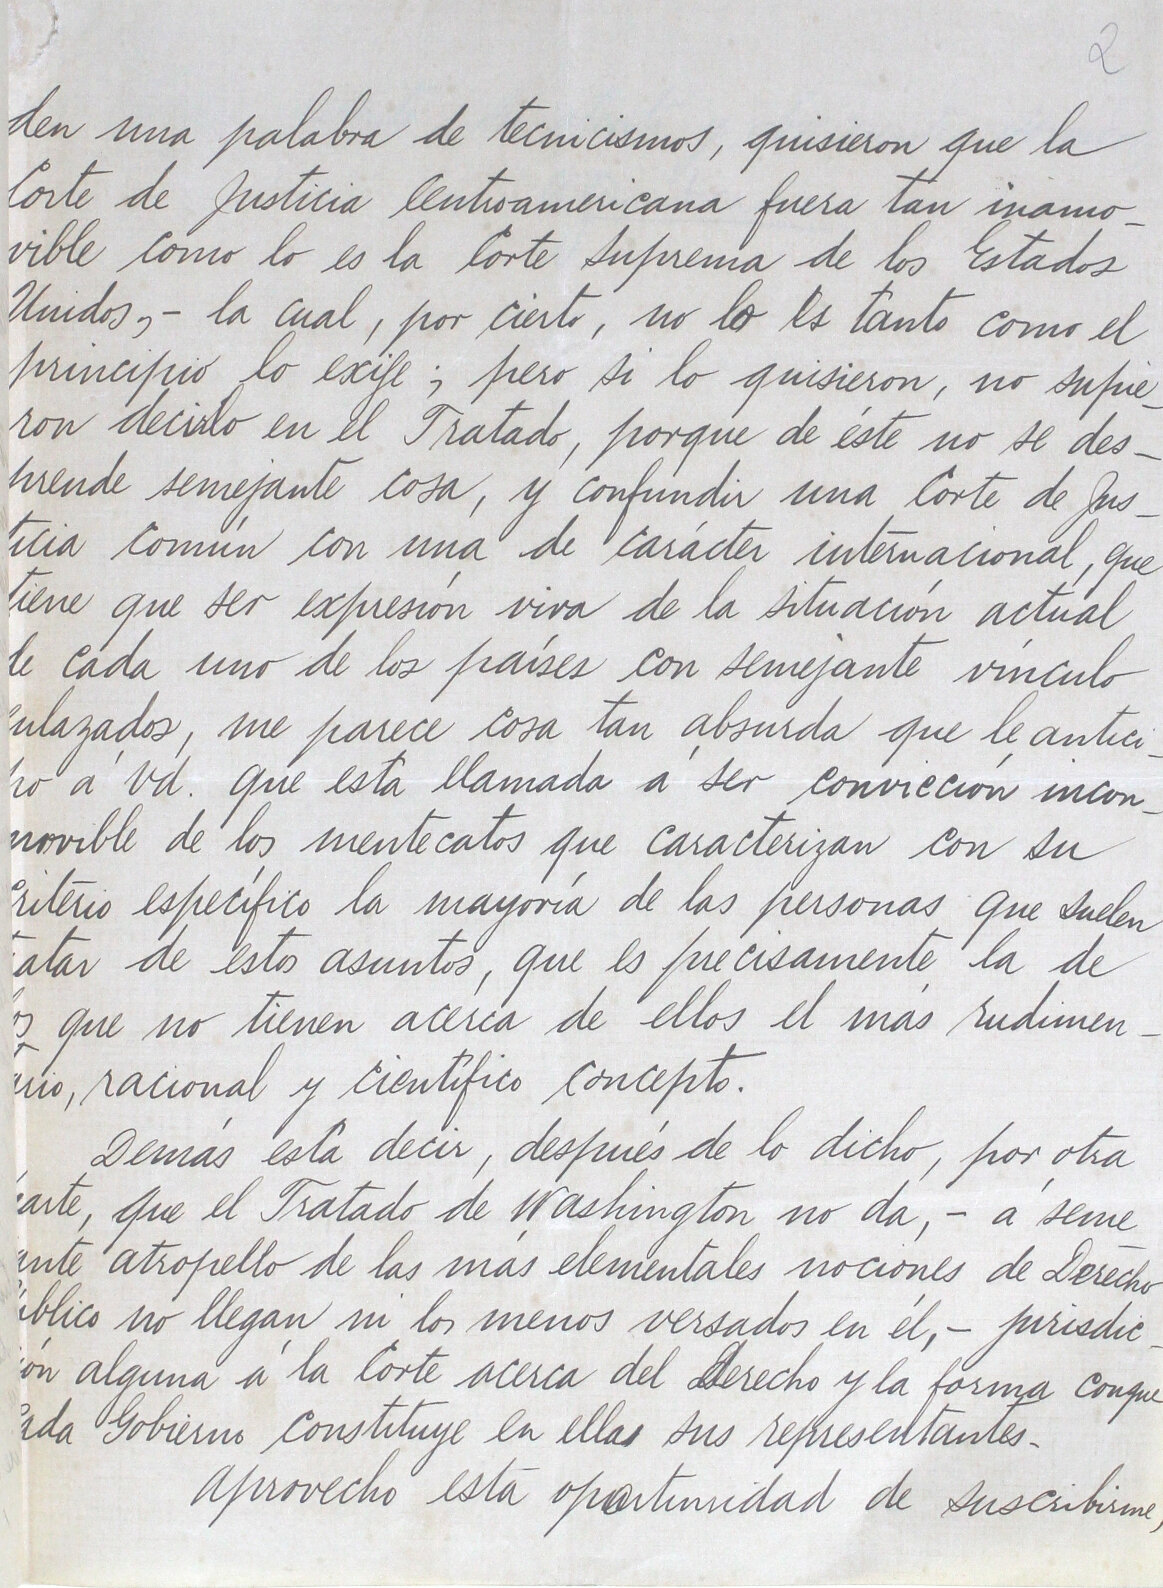 2
den una palabra de tecnicismos, quisieron que la
Corte de Justicia Centroamericana fuera tan inamo-
vible como lo es la Corte Suprema de los Estados
Unidos, - la cual, por cierto, no lo es tanto como el
principio lo exije; pero si lo quisieron, no supie-
ron decirlo en el Tratado, porque de éste no se des-
prende semejante cosa, y confundir una Corte de Jus-
ticia común con una de carácter internacional, que
tiene que ser expresión viva de la situación actual
de cada uno de los países con semejante vínculo
enlazados, me parece cosa tan absurda que le antici-
po á Vd. que está llamada á ser convicción incon-
movible de los mentecatos que caracterizan con su
criterio específico la mayoría de las personas que suelen
tratar de estos asuntos, que es precisamente la de
los que no tienen acerca de ellos el más rudimen-
tario, racional y científico concepto.
Demás está decir, después de lo dicho, por otra
parte, que el Tratado de Washington no da, - á seme
jante atropello de las más elementales nociones de Derecho
Público no llegan ni los menos versados en él, - jurisdic-
ción alguna á la Corte acerca del Derecho y la forma conque
cada Gobierno constituye en ella sus representantes.
Aprovecho esta oportunidad de suscribirme,